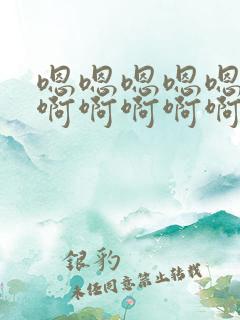 嗯嗯嗯嗯嗯
啊啊啊啊啊
银豹
未经同意禁止转载